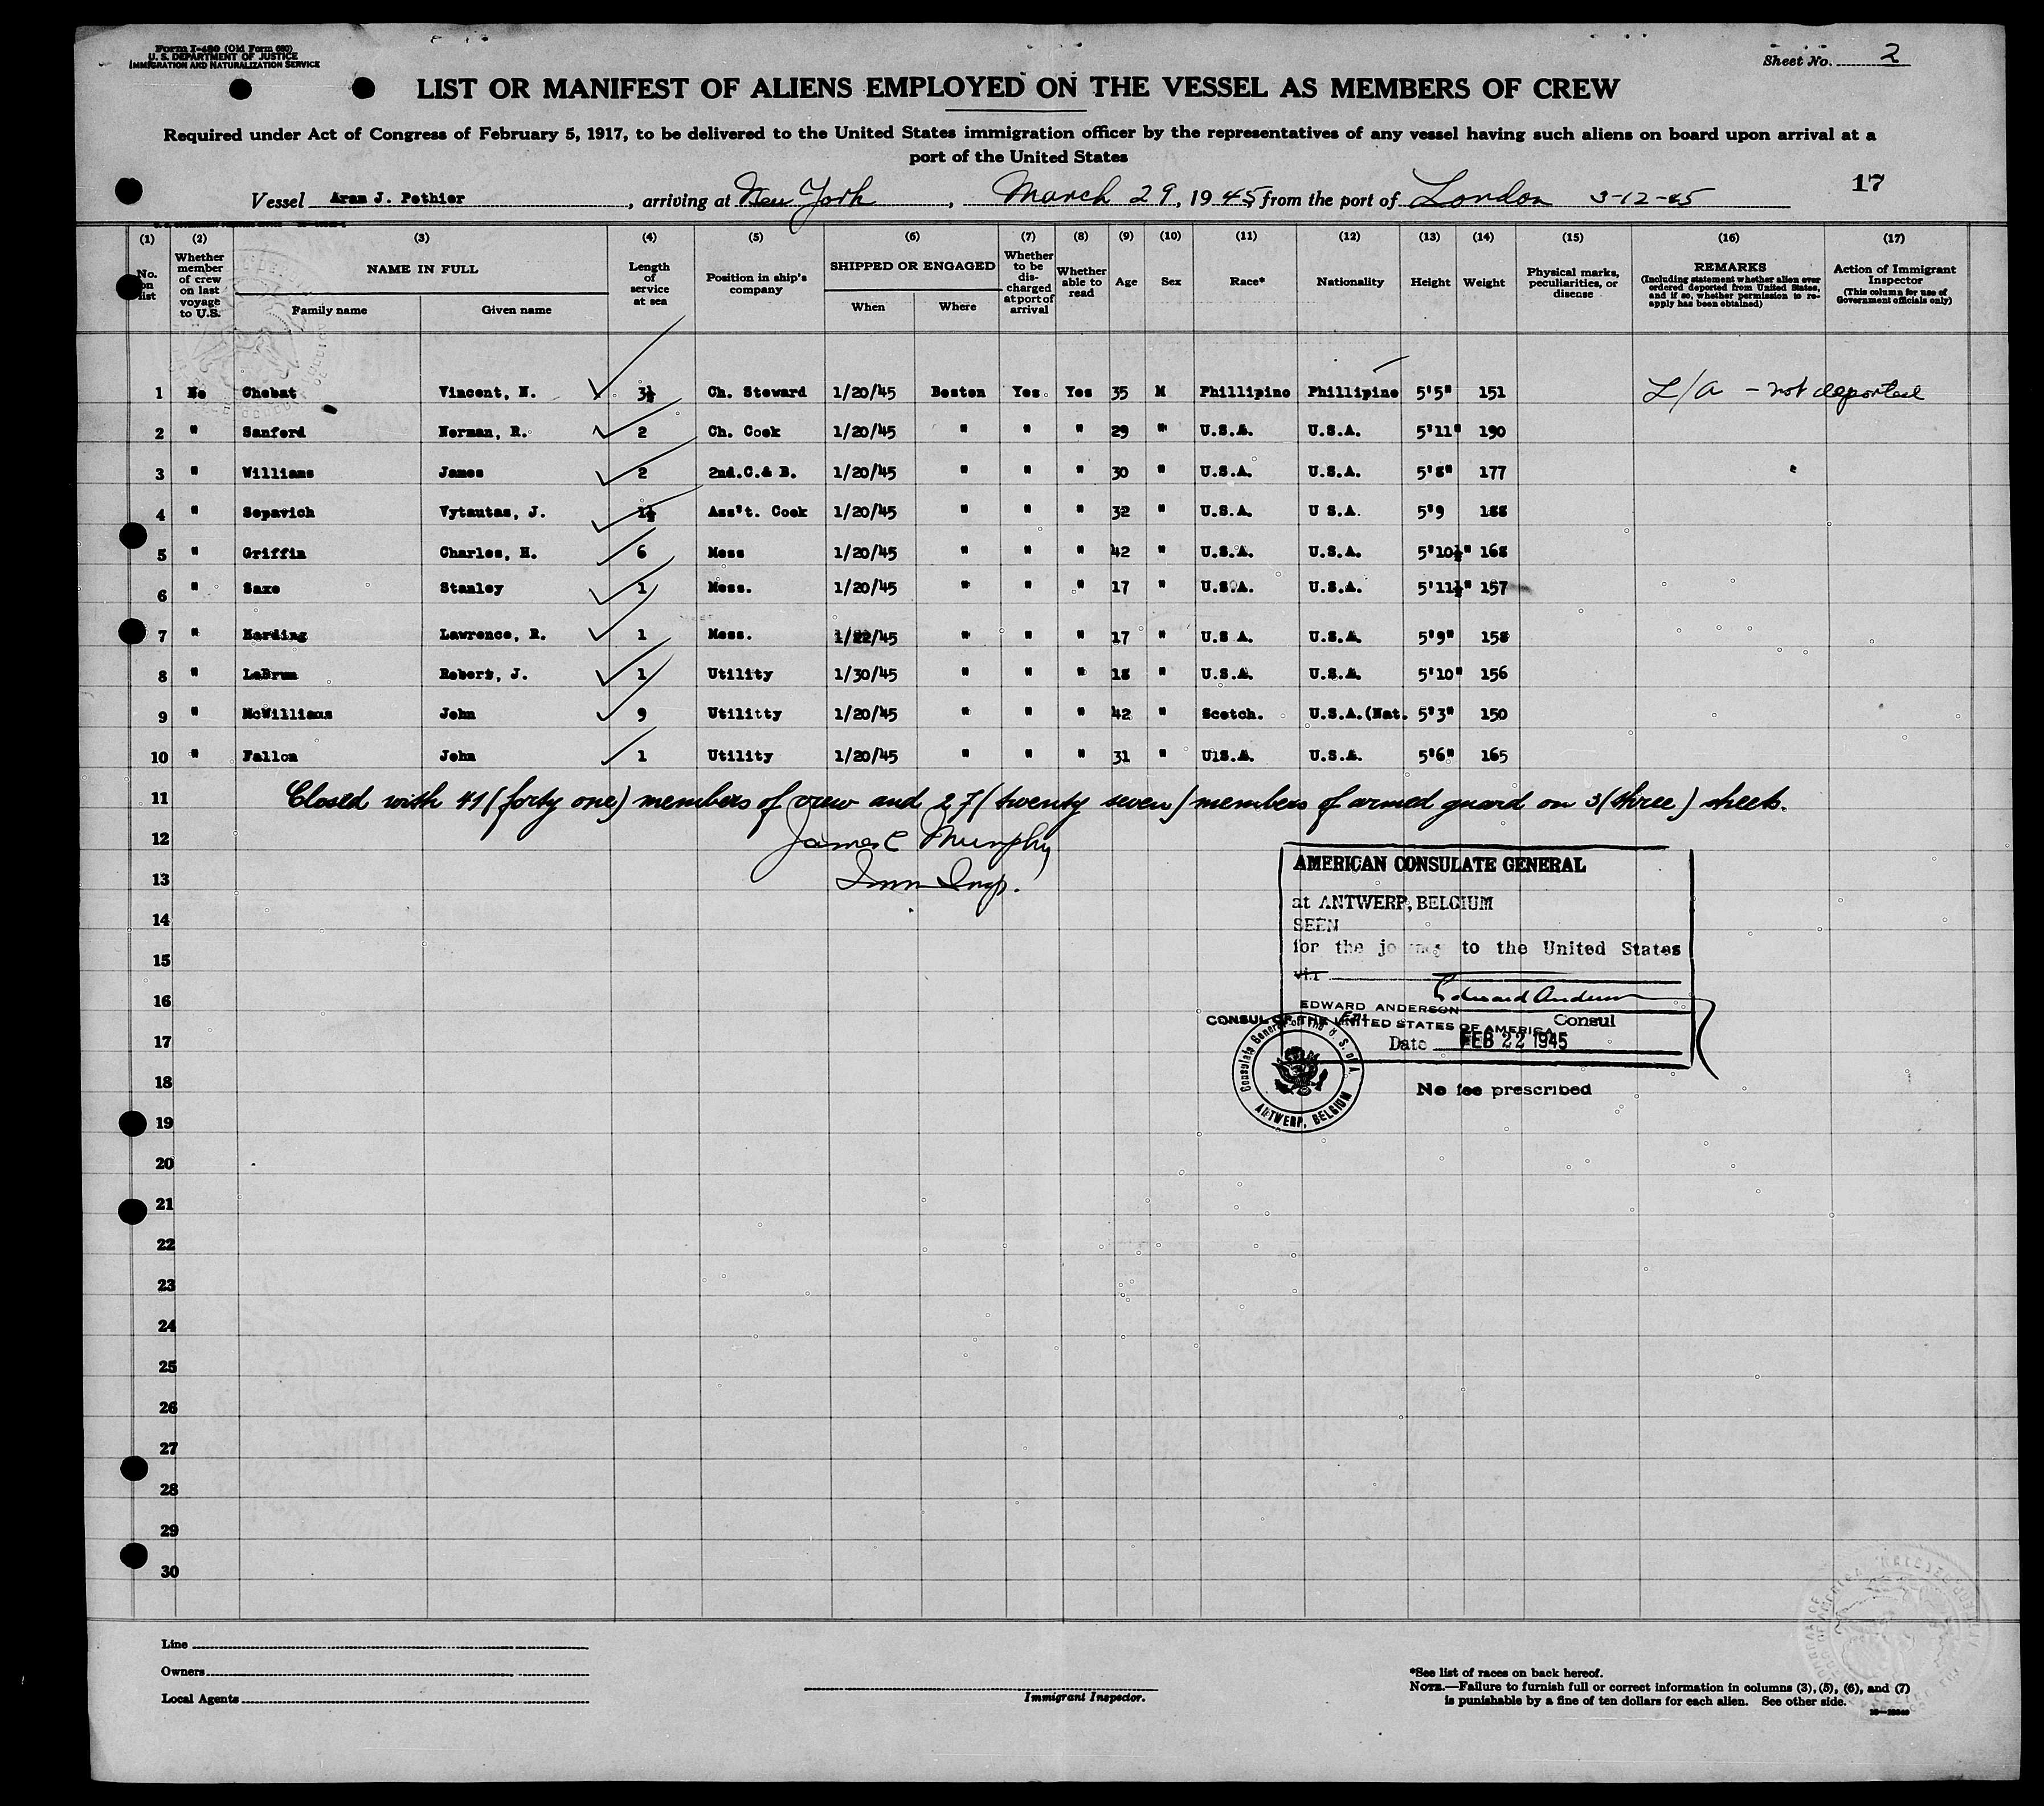 Form I-480 (Old Form 680)
U. S. DEPARTMENT OF JUSTICE
IMMIGRATION AND NATURALIZATION SERVICE
Sheet No. 2
LIST OR MANIFEST OF ALIENS EMPLOYED ON THE VESSEL AS MEMBERS OF CREW
Required under Act of Congress of February 5, 1917, to be delivered to the United States immigration officer by the representatives of any vessel having such aliens on board upon arrival at a
port of the United States
17
Vessel Aram J. Pothier, arriving at New York, March 29, 1945, from the port of London 3-12-45
(1) (2) (3) (4) (5) (6) (7) (8) (9) (10) (11) (12) (13) (14) (15) (16) (17)
No. on list
Whether member of crew on last voyage to U.S.
NAME IN FULL
Family name Given name
Length of service at sea
Position in ship's company
SHIPPED OR ENGAGED
When Where
Whether to be discharged at port of arrival
Whether able to read
Age
Sex
Race*
Nationality
Height
Weight
Physical marks, peculiarities, or disease
REMARKS
(Including statement whether alien ever ordered deported from United States, and if so, whether permission to reapply has been obtained)
Action of Immigrant Inspector
(This column for use of Government officials only)
1 No Chebat Vincent, N. 3½ Ch. Steward 1/20/45 Boston Yes Yes 35 M Phillipino Phillipine 5'5" 151 L/A - not deported
2 " Sanford Norman, R. 2 Ch. Cook 1/20/45 " " " 29 " U.S.A. U.S.A. 5'11" 190
3 " Williams James 2 2nd.C.& B. 1/20/45 " " " 30 " U.S.A. U.S.A. 5'8" 177
4 " Sepavich Vytautas, J. 1½ Ass't. Cook 1/20/45 " " " 32 " U.S.A. U S.A. 5'9 188
5 " Griffin Charles, H. 6 Mess 1/20/45 " " " 42 " U.S.A. U.S.A. 5'10½" 168
6 " Saxe Stanley 1 Mess. 1/20/45 " " " 17 " U.S.A. U.S.A. 5'11½" 157
7 " Harding Lawrence, R. 1 Mess. 1/22/45 " " " 17 " U.S A. U.S.A. 5'9" 158
8 " LeBrun Robert, J. 1 Utility 1/30/45 " " " 18 " U.S.A. U.S.A. 5'10" 156
9 " McWilliams John 9 Utilitty 1/20/45 " " " 42 " Scotch. U.S.A.(Nat. 5'3" 150
10 " Fallon John 1 Utility 1/20/45 " " " 31 " UlS.A. U.S.A. 5'6" 165
11 Closed with 41 (forty one) members of crew and 27 (twenty seven) members of armed guard on 3 (three) sheets.
12 James C Murphy
13 Imm Insp.
AMERICAN CONSULATE GENERAL
at ANTWERP, BELGIUM
14 SEEN
for the journey to the United States
15 via
16 Edward Anderson
EDWARD ANDERSON
CONSUL OF THE UNITED STATES OF AMERICA Consul
17 Date FEB 22 1945
Consulate General of The U. S. of A.
ANTWERP, BELGIUM
18 No fee prescribed
19
20
21
22
23
24
25
26
27
28
29
30
Line
Owners
Local Agents
Immigrant Inspector.
*See list of races on back hereof.
NOTE.—Failure to furnish full or correct information in columns (3), (5), (6), and (7)
is punishable by a fine of ten dollars for each alien. See other side.